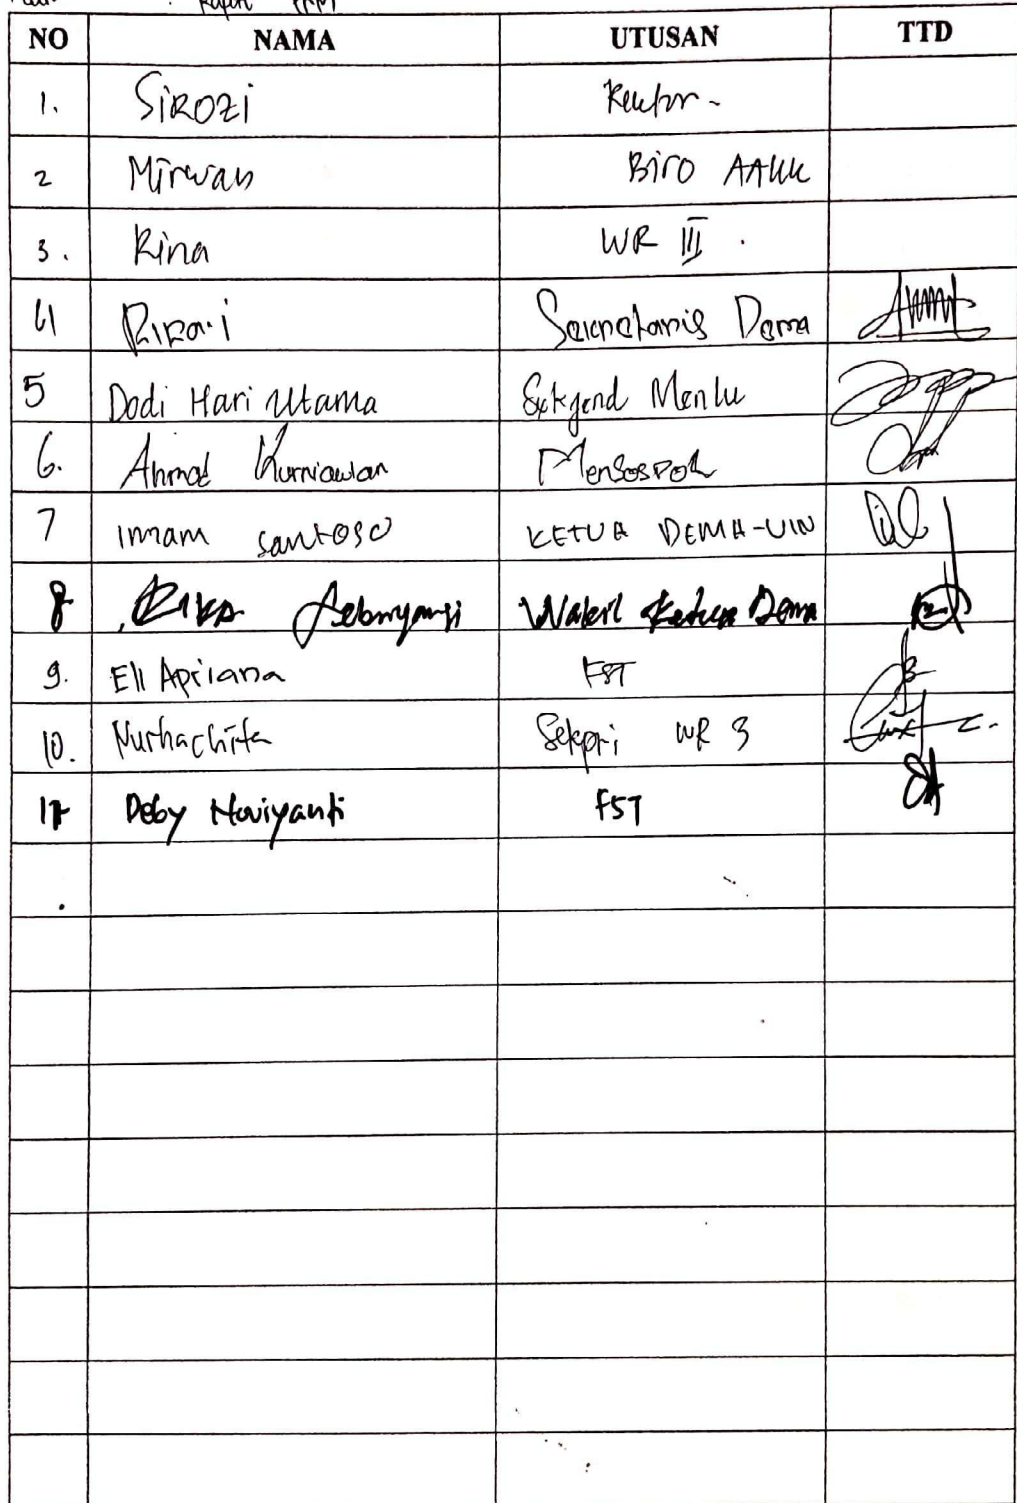 NO NAMA UTUSAN TTD
1. Sirozi Rektor -
2 Mirwan Biro AAKK
3. Rina WR III
4 Rizari Sekretaris Dema
5 Dodi Hari Utama Sekjend Menlu
6. Ahmad Kurniawan Mensospol
7 imam santoso KETUA DEMA-UIN
8 Rika Febriyansi Wakil Ketua Dema
9. Eli Apriana FST
10. Nurhachita Sekpri WR 3
11 Deby Noviyanti FST